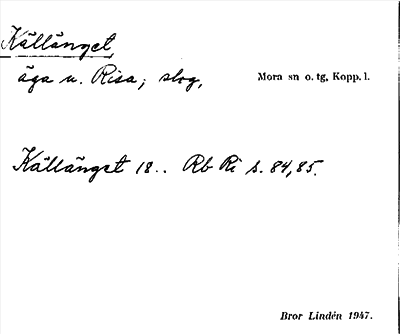 Källänget,
äga u. Risa; slog, Mora sn o. tg, Kopp. l.
Källänget 18.. Rb Ri s. 84, 85.
Bror Lindén 1947.